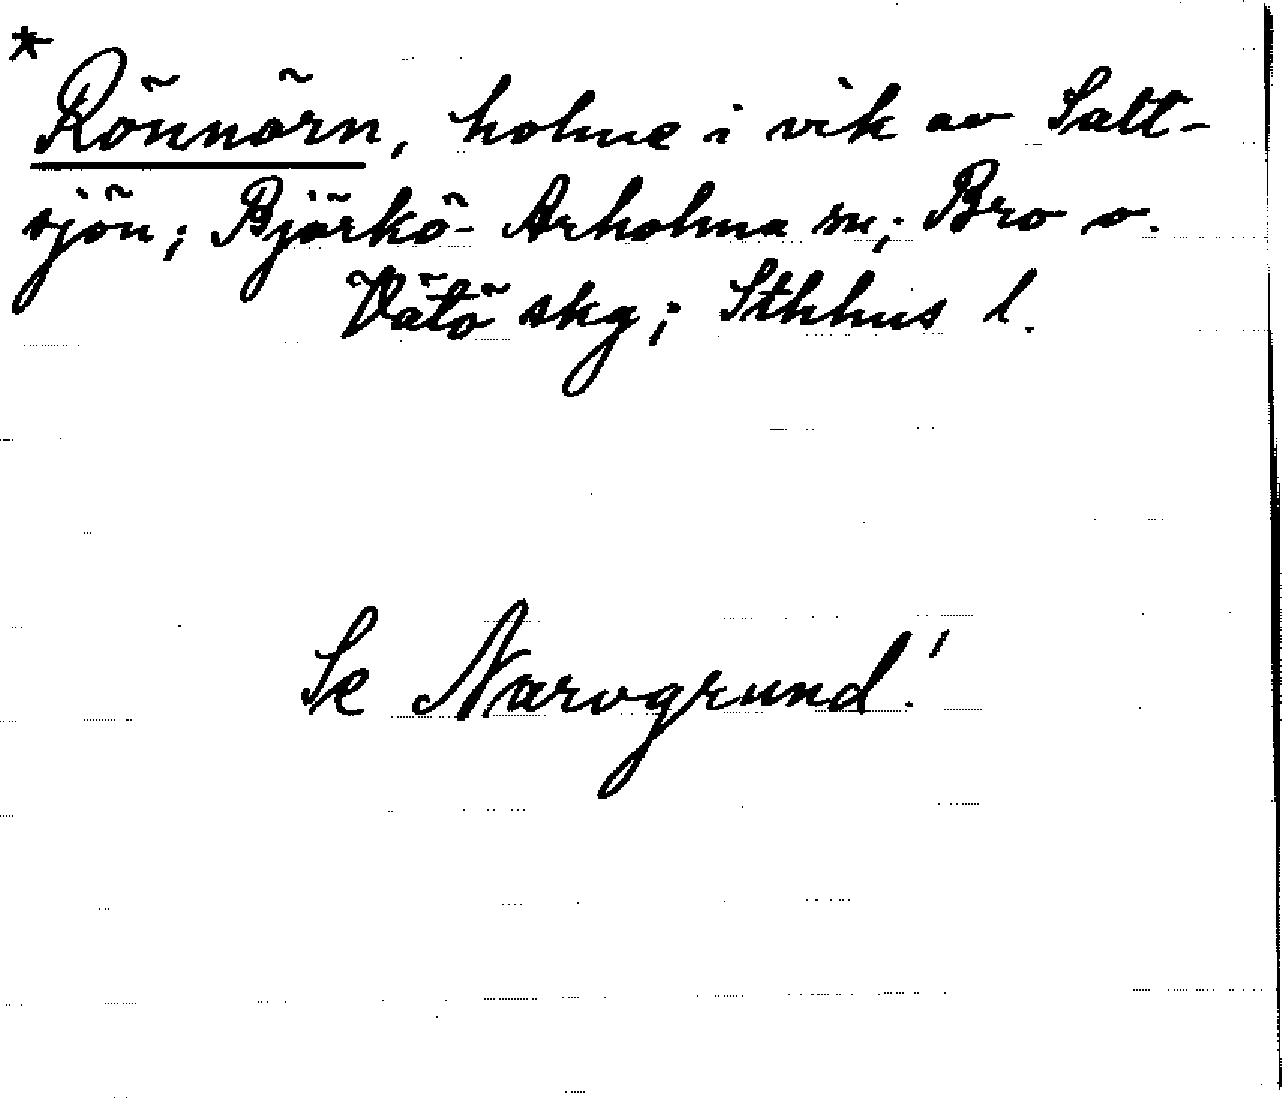 *
Rönnörn, holme i vik av Salt-
sjön; Björkö-Arholma sn; Bro o.
Vätö skg; Sthhus l.
Se Narvgrund!